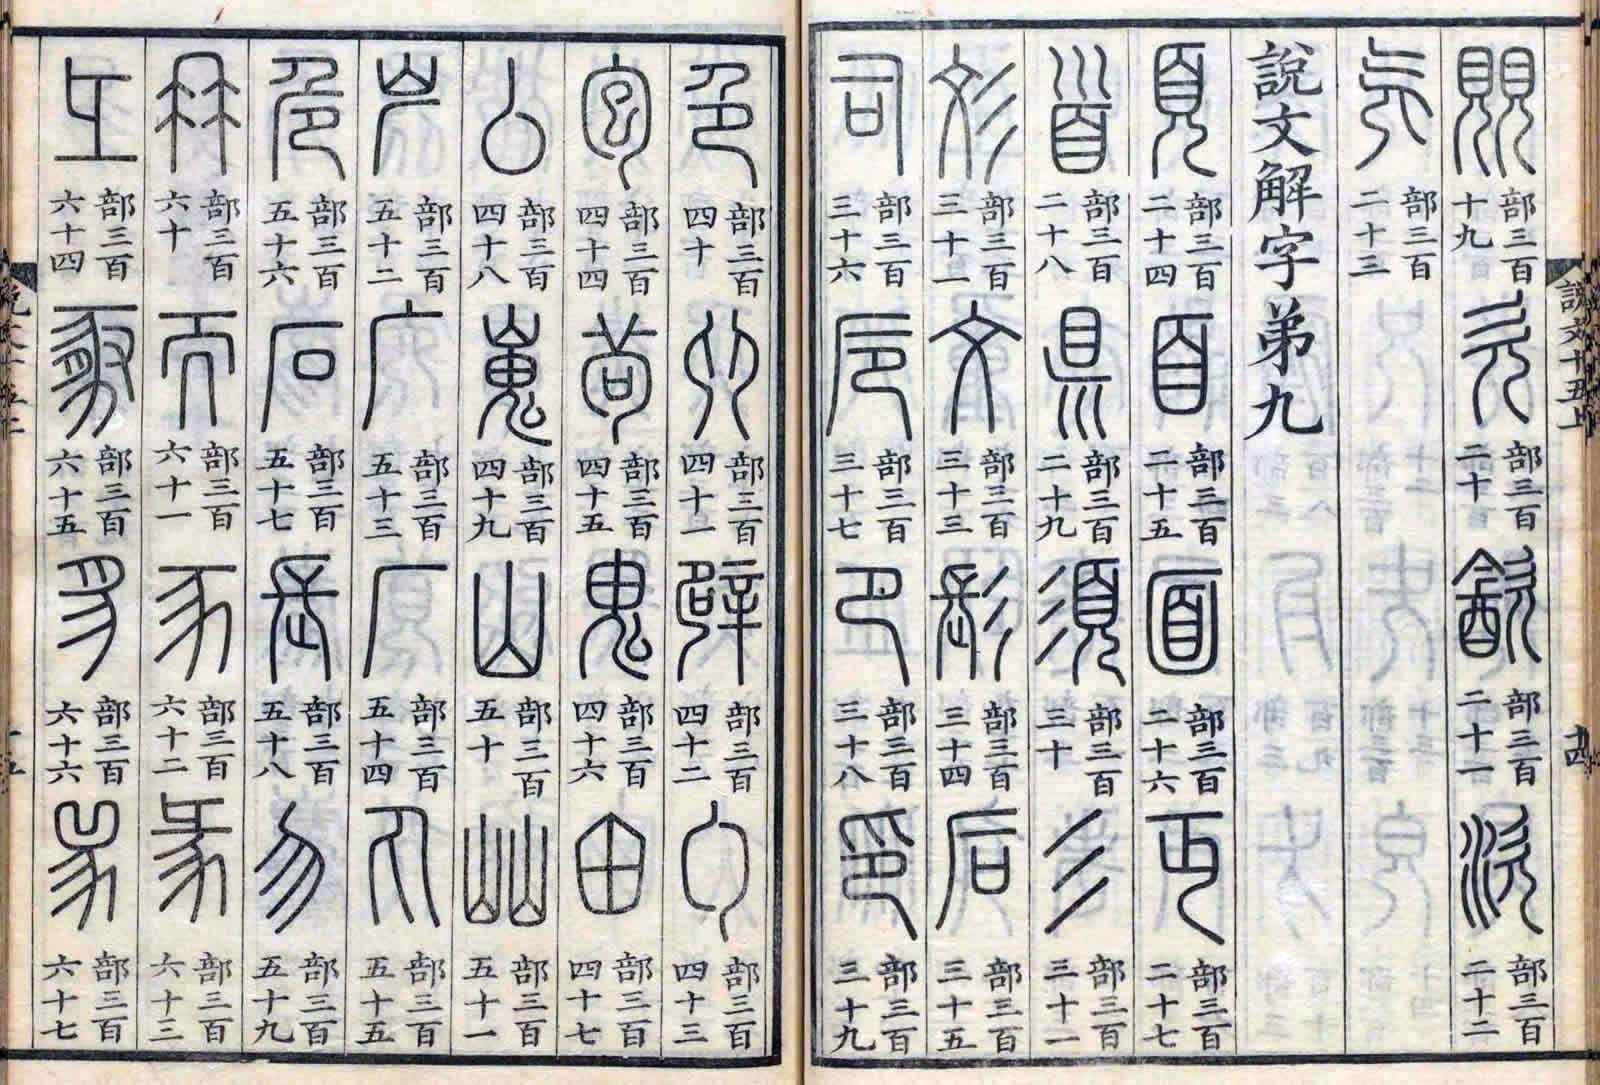 說文十五上 十四
覞 部三百十九 欠 部三百二十 㱃 部三百二十一 㳄 部三百二十二
旡 部三百二十三
說文解字弟九
頁 部三百二十四 𦣻 部三百二十五 面 部三百二十六 丏 部三百二十七
首 部三百二十八 県 部三百二十九 須 部三百三十 彡 部三百三十一
彣 部三百三十一 文 部三百三十三 髟 部三百三十四 后 部三百三十五
司 部三百三十六 卮 部三百三十七 卩 部三百三十八 印 部三百三十九
色 部三百四十 卯 部三百四十一 辟 部三百四十二 勹 部三百四十三
包 部三百四十四 茍 部三百四十五 鬼 部三百四十六 甶 部三百四十七
厶 部三百四十八 嵬 部三百四十九 山 部三百五十 屾 部三百五十一
屵 部三百五十二 广 部三百五十三 厂 部三百五十四 丸 部三百五十五
危 部三百五十六 石 部三百五十七 長 部三百五十八 勿 部三百五十九
冄 部三百六十 而 部三百六十一 豕 部三百六十二 㣇 部三百六十三
彑 部三百六十四 豚 部三百六十五 豸 部三百六十六 𤉡 部三百六十七